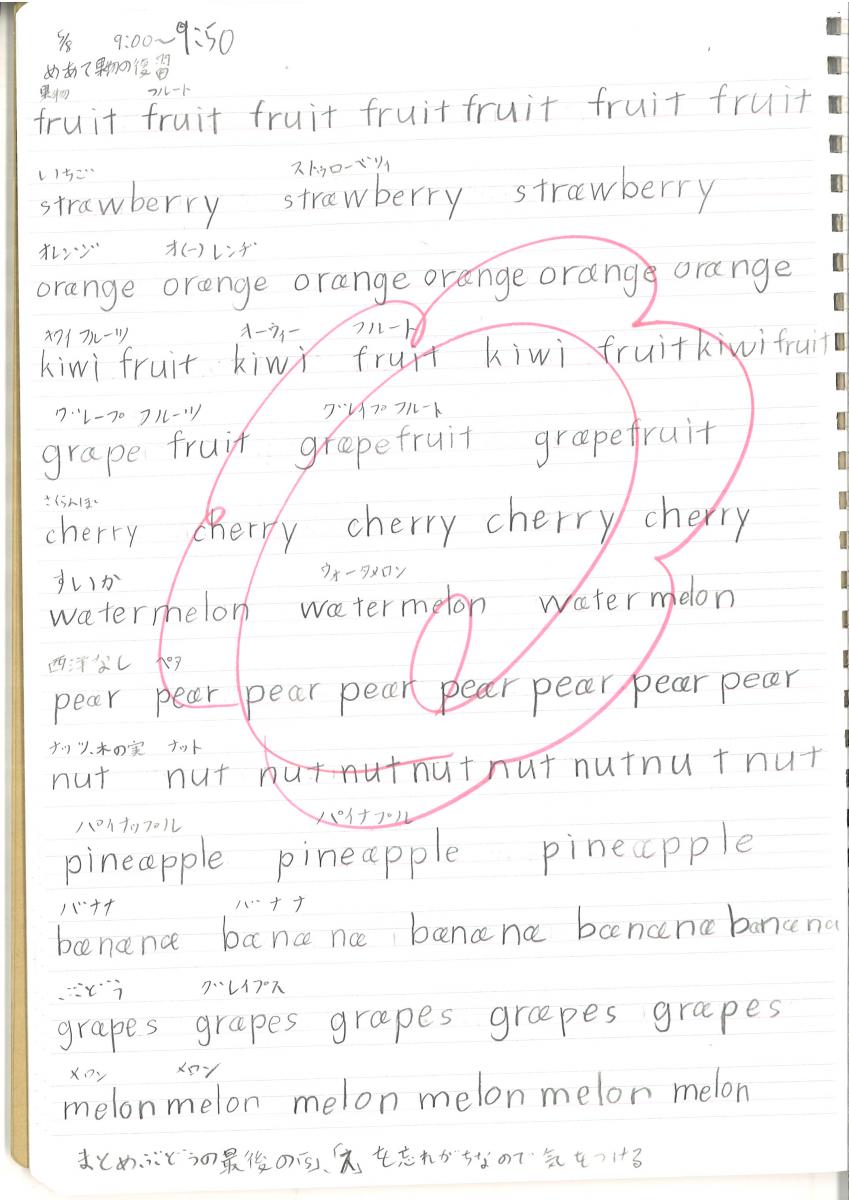 5/8 9:00〜9:50
めあて果物の復習
果物 フルート
fruit fruit fruit fruit fruit fruit fruit
いちご ストゥローベリィ
strawberry strawberry strawberry
オレンジ オ(ー)レンヂ
orange orange orange orange orange orange
キウイフルーツ キーウィー フルート
kiwi fruit kiwi fruit kiwi fruit kiwi fruit
グレープ フルーツ グレイプフルート
grape fruit grapefruit grapefruit
さくらんぼ
cherry cherry cherry cherry cherry
すいか ウォータメロン
watermelon watermelon watermelon
西洋なし ペア
pear pear pear pear pear pear pear pear
ナッツ、木の実 ナット
nut nut nut nut nut nut nut nut nut
パイナップル パイナプル
pineapple pineapple pineapple
バナナ バナナ
banana banana banana banana banana
ぶどう グレイプス
grapes grapes grapes grapes grapes
メロン メロン
melon melon melon melon melon melon
まとめぶどうの最後の「s」、「え」を忘れがちなので気をつける